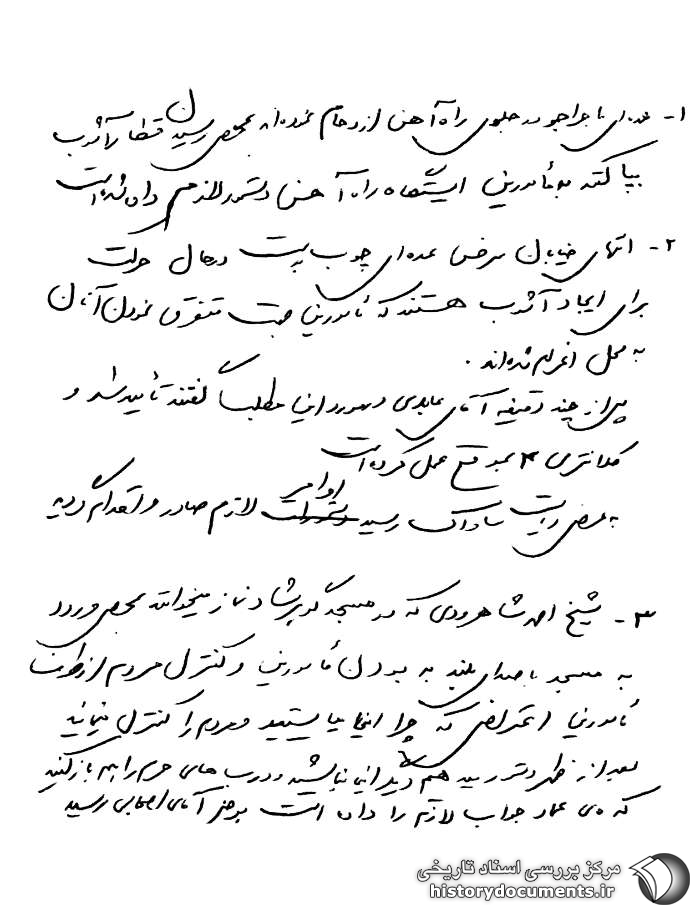 ۱- عده‌ای ماجراجو در جلوی راه‌آهن ازدحام نموده‌اند بمحض رسیدن قطار آشوب
بپا کنند به مأمورین ایستگاه راه آهن دستور لازم داده شده است
۲- انتهای خیابان سرخس عده‌ای چوب بدست در حال حرکت
برای ایجاد آشوب هستند که مأمورین جهت متفرق نمودن آنان
به محل اعزام شده‌اند.
پس از چند دقیقه آقای عابدی در مورد این مطلب گفتند تأیید شد و
کلانتری ۴ بموقع عمل کرده است
به عرض ریاست ساواک رسید اوامر لازم صادر و اقدام گردید
۳- شیخ احمد شاهرودی که در مسجد گوهرشاد نماز میخواند بمحض ورود
به مسجد با صدای بلند به بودن مأمورین و کنترل مردم از طرف
مأمورین اعتراض که چرا اینجا میایستید و مردم را کنترل مینمائید
بعد از ظهر دستور دهید هم در اینجا نباشند و درب های حرم را هم باز کنید
که جواب لازم را داده است بعرض آقای رسید
مرکز بررسی اسناد تاریخی
historydocuments.ir